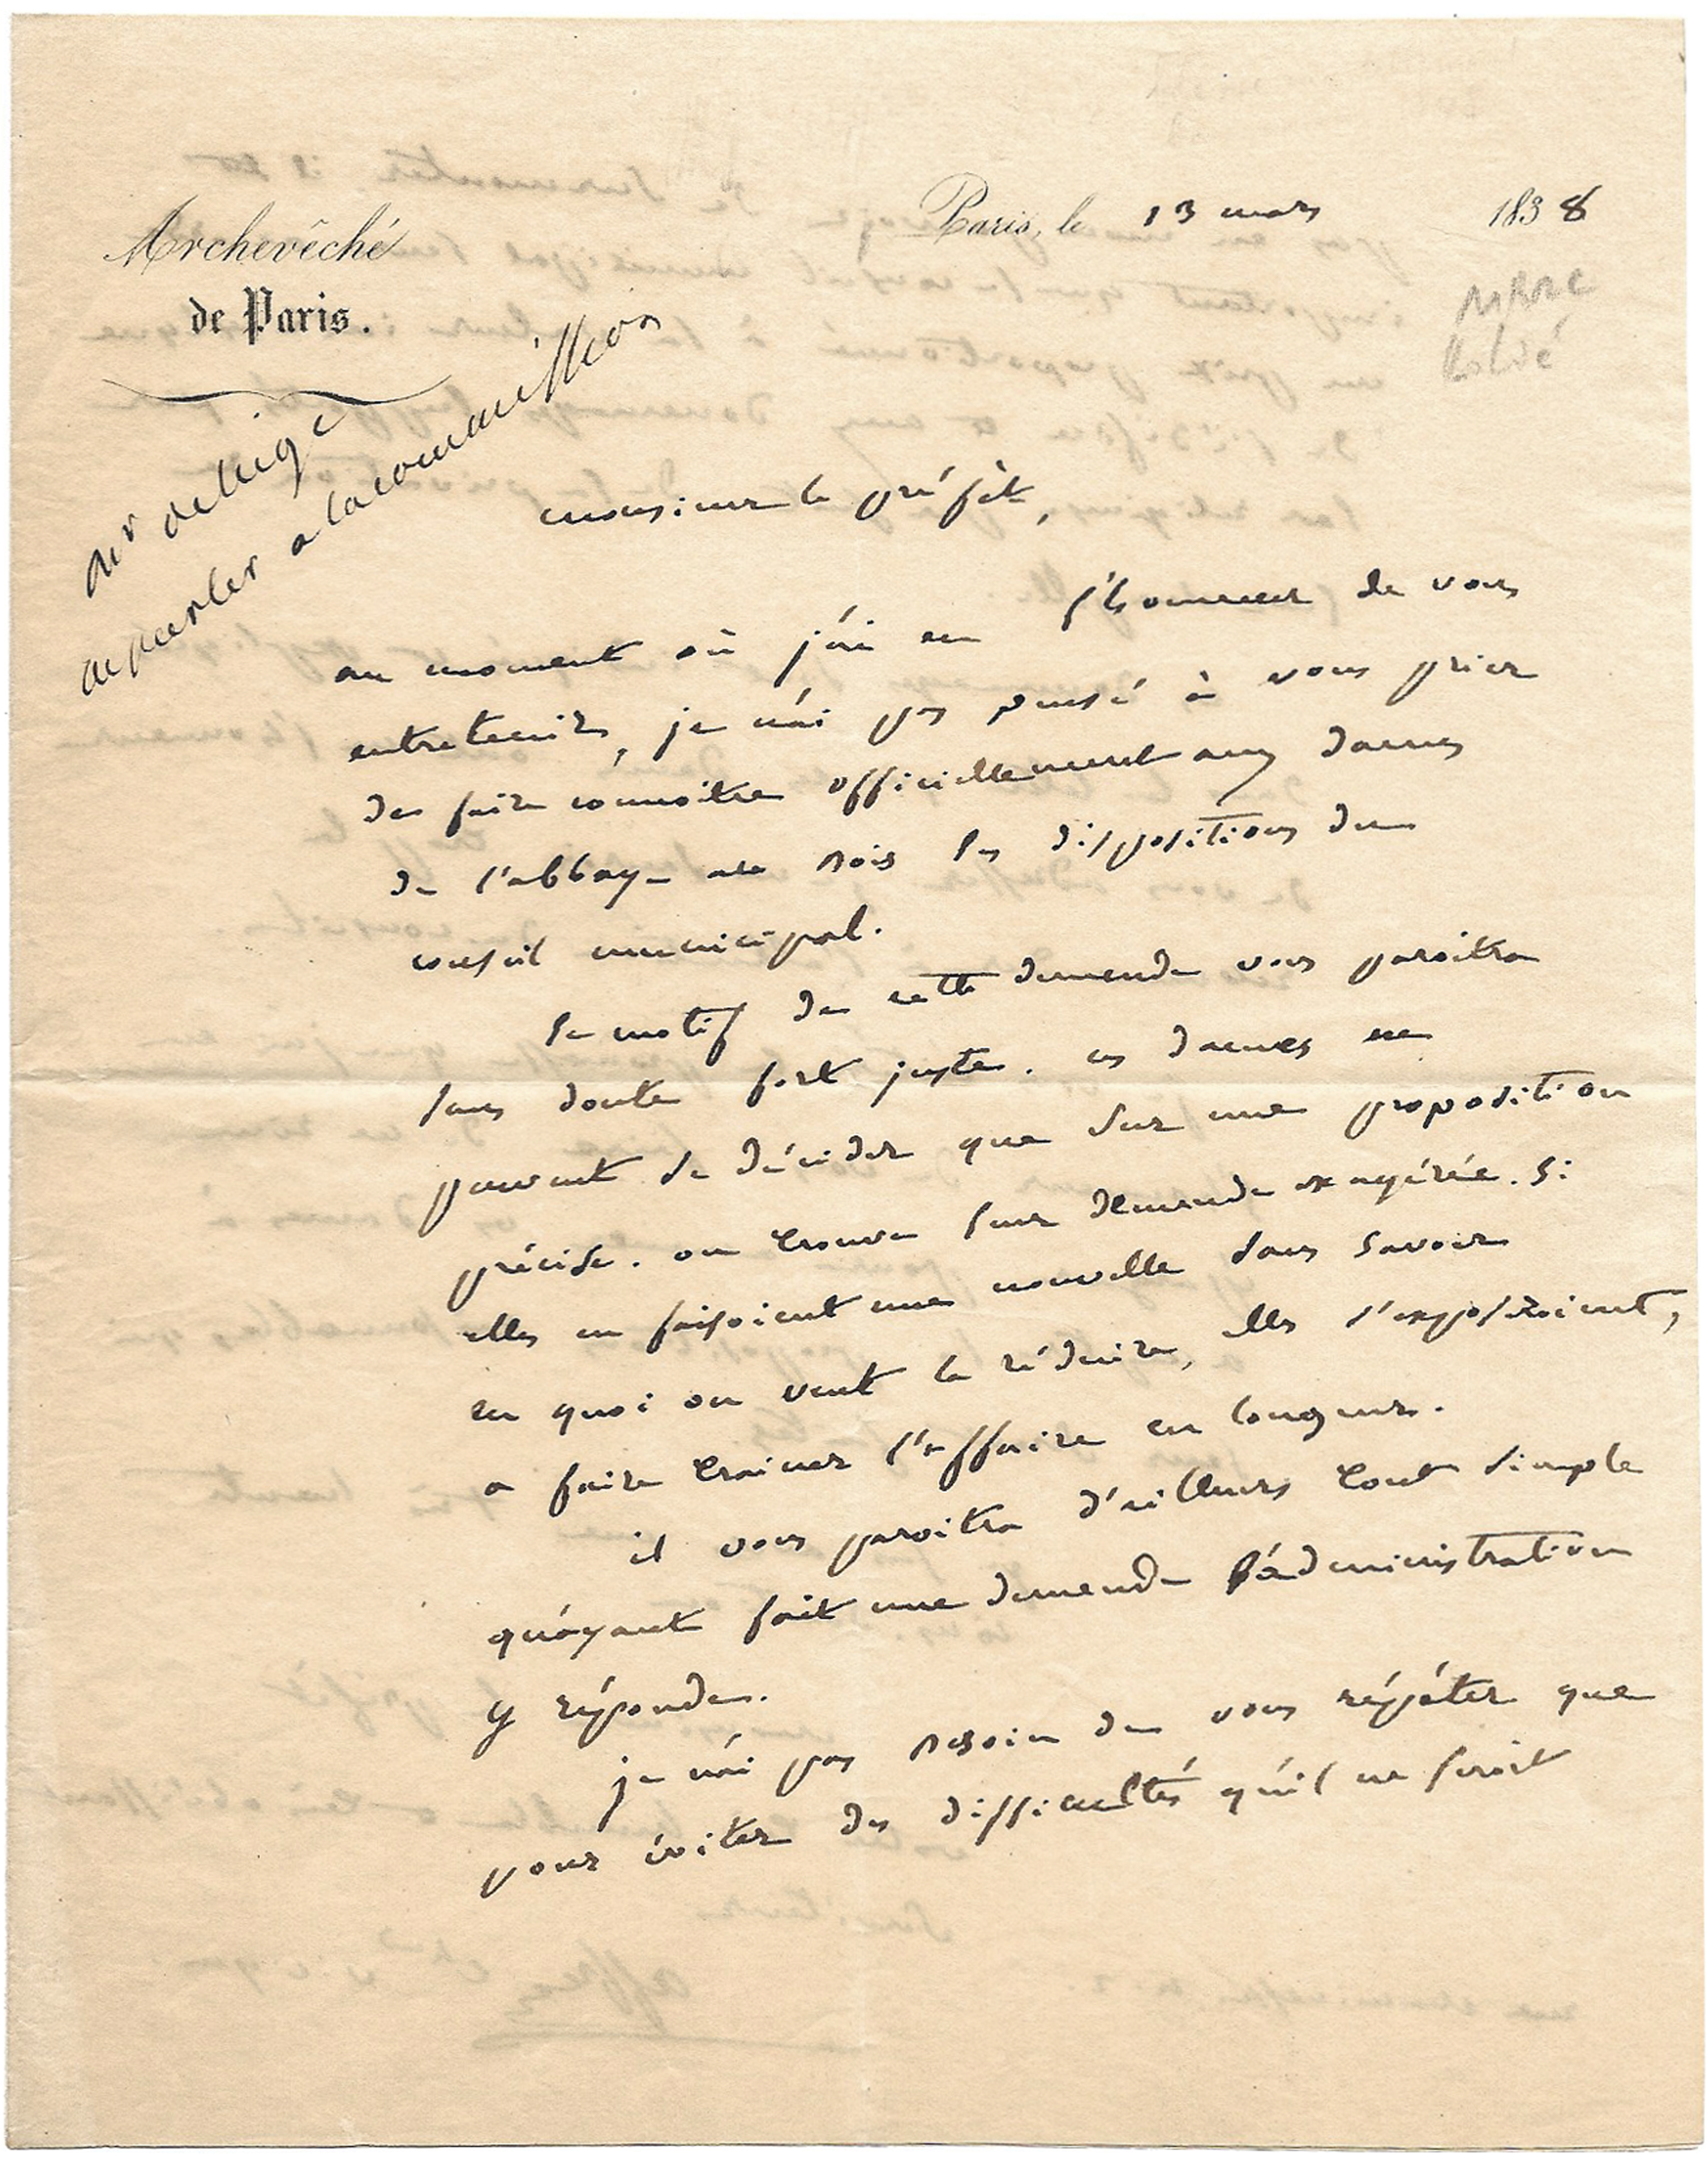 Archevêché
de Paris.
Paris, le 13 mars 1838
Mr
en parler a la commission
monsieur le préfet,
au moment où j'ai eu l'honneur de vous
entretenir, je n'ai pas pensé à vous prier
de faire connoitre officiellement aux dames
de l'abbaye au bois les dispositions du
conseil municipal.
le motif de cette demande vous paroitra
sans doute fort juste. ces dames ne
peuvent se décider que sur une proposition
précise. on trouve leur demande exagérée. si
elles en faisoient une nouvelle sans savoir
en quoi on veut la réduire, elles s'exposeroient,
a faire trainer l'affaire en longueur.
il vous paroitra d'ailleurs tout simple
qu'ayant fait une demande l'administration
y réponde.
je n'ai pas besoin de vous répéter que
pour éviter des difficultés qu'il ne seroit